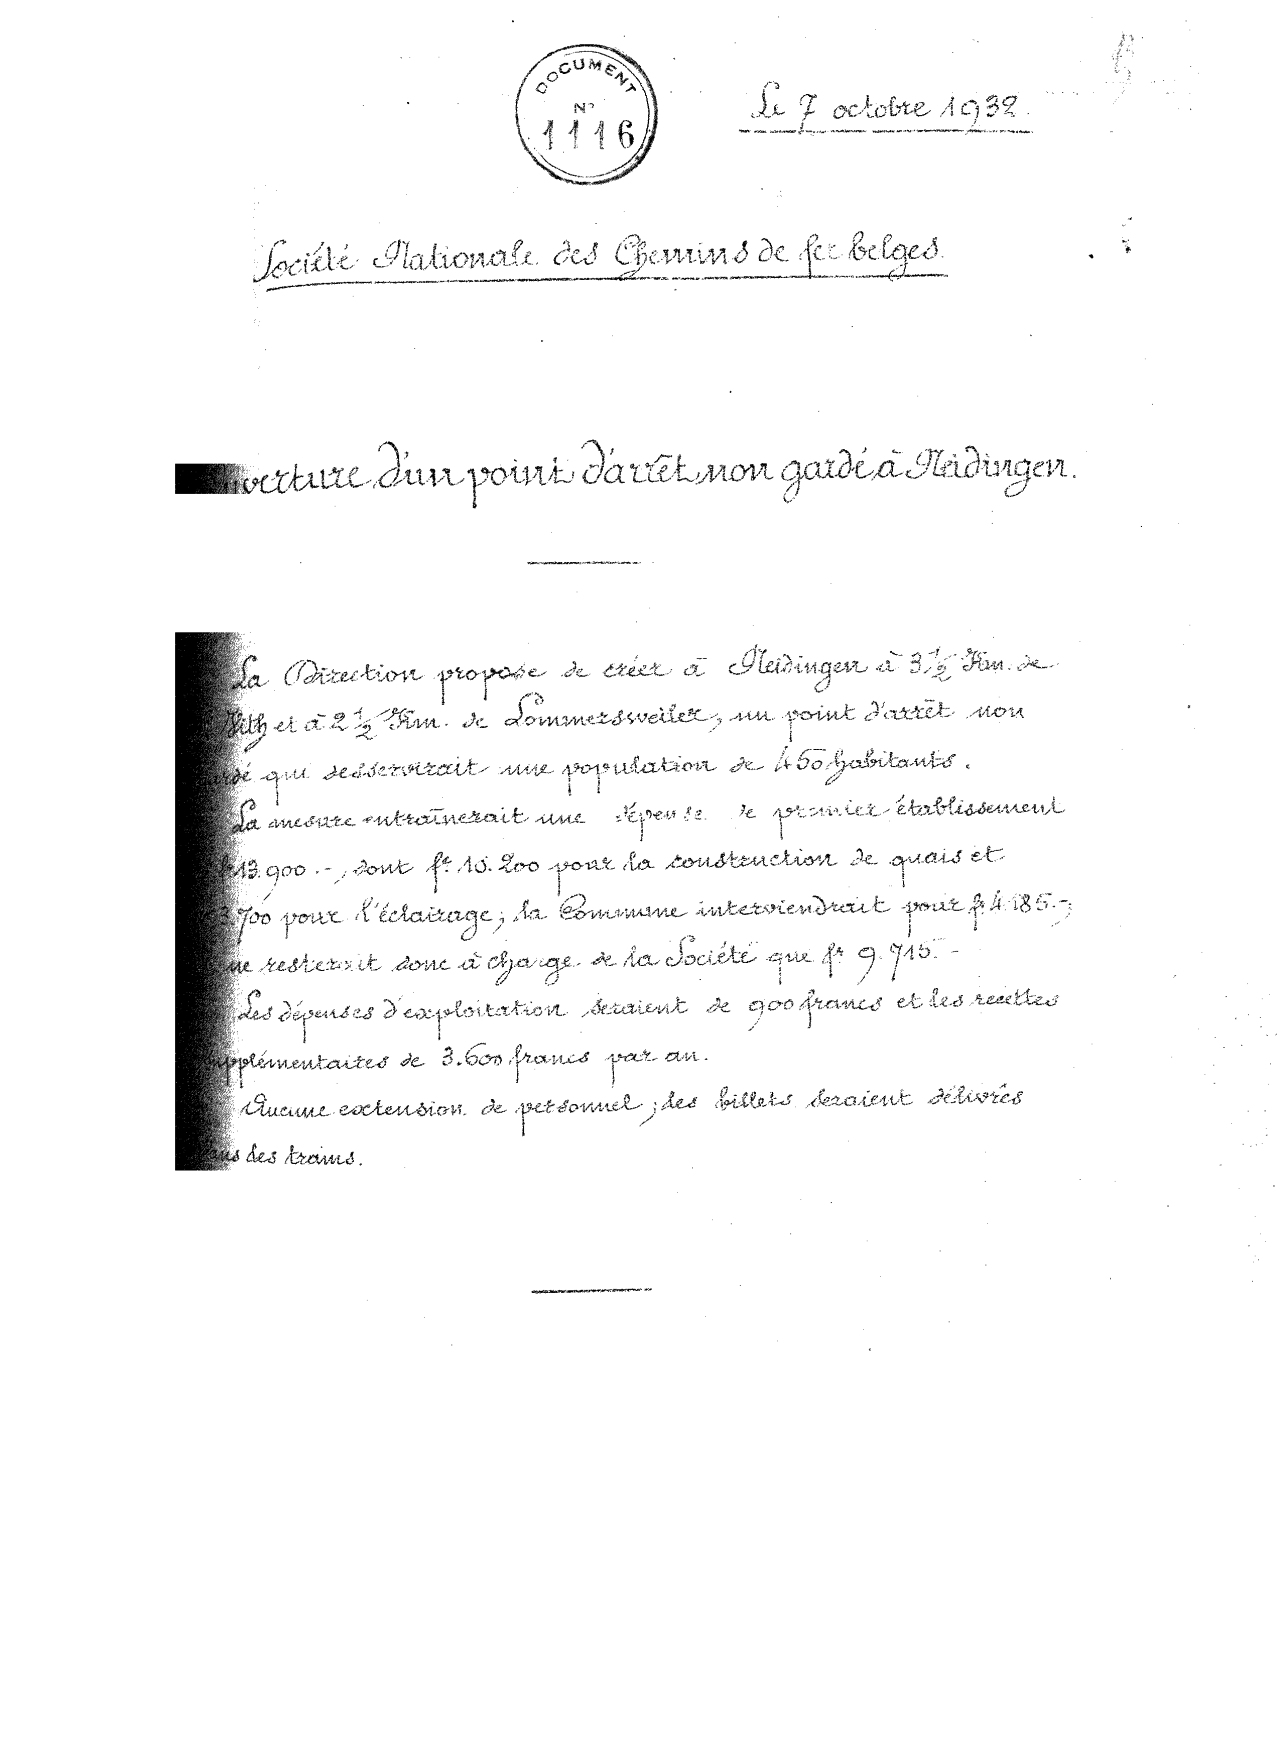 DOCUMENT
N°
1116
Le 7 octobre 1932.
Société Nationale des Chemins de fer belges.
verture d'un point d'arrêt non gardé à Neidingen.
La Direction propose de créer à Neidingen à 3 1/2 Km. de
Vith et à 2 1/2 Km. de Lommersweiler, un point d'arrêt non
gardé qui desservirait une population de 450 habitants.
La mesure entraînerait une dépense de premier établissement
fr 13.900.-, dont fr 10.200 pour la construction de quais et
3.700 pour l'éclairage; la Commune interviendrait pour fr 4.185.-;
ne resterait donc à charge de la Société que fr 9.715.-
Les dépenses d'exploitation seraient de 900 francs et les recettes
supplémentaires de 3.600 francs par an.
Aucune extension de personnel; les billets seraient délivrés
dans les trains.